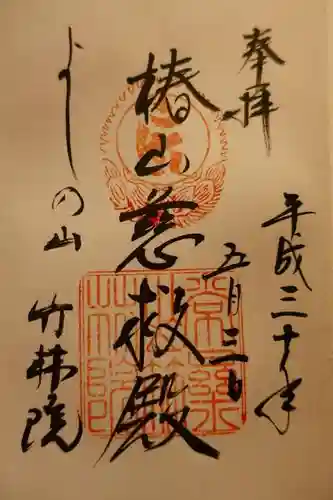 奉拝
平成三十年
五月三日
椿山慈救殿
よしの山
竹林院